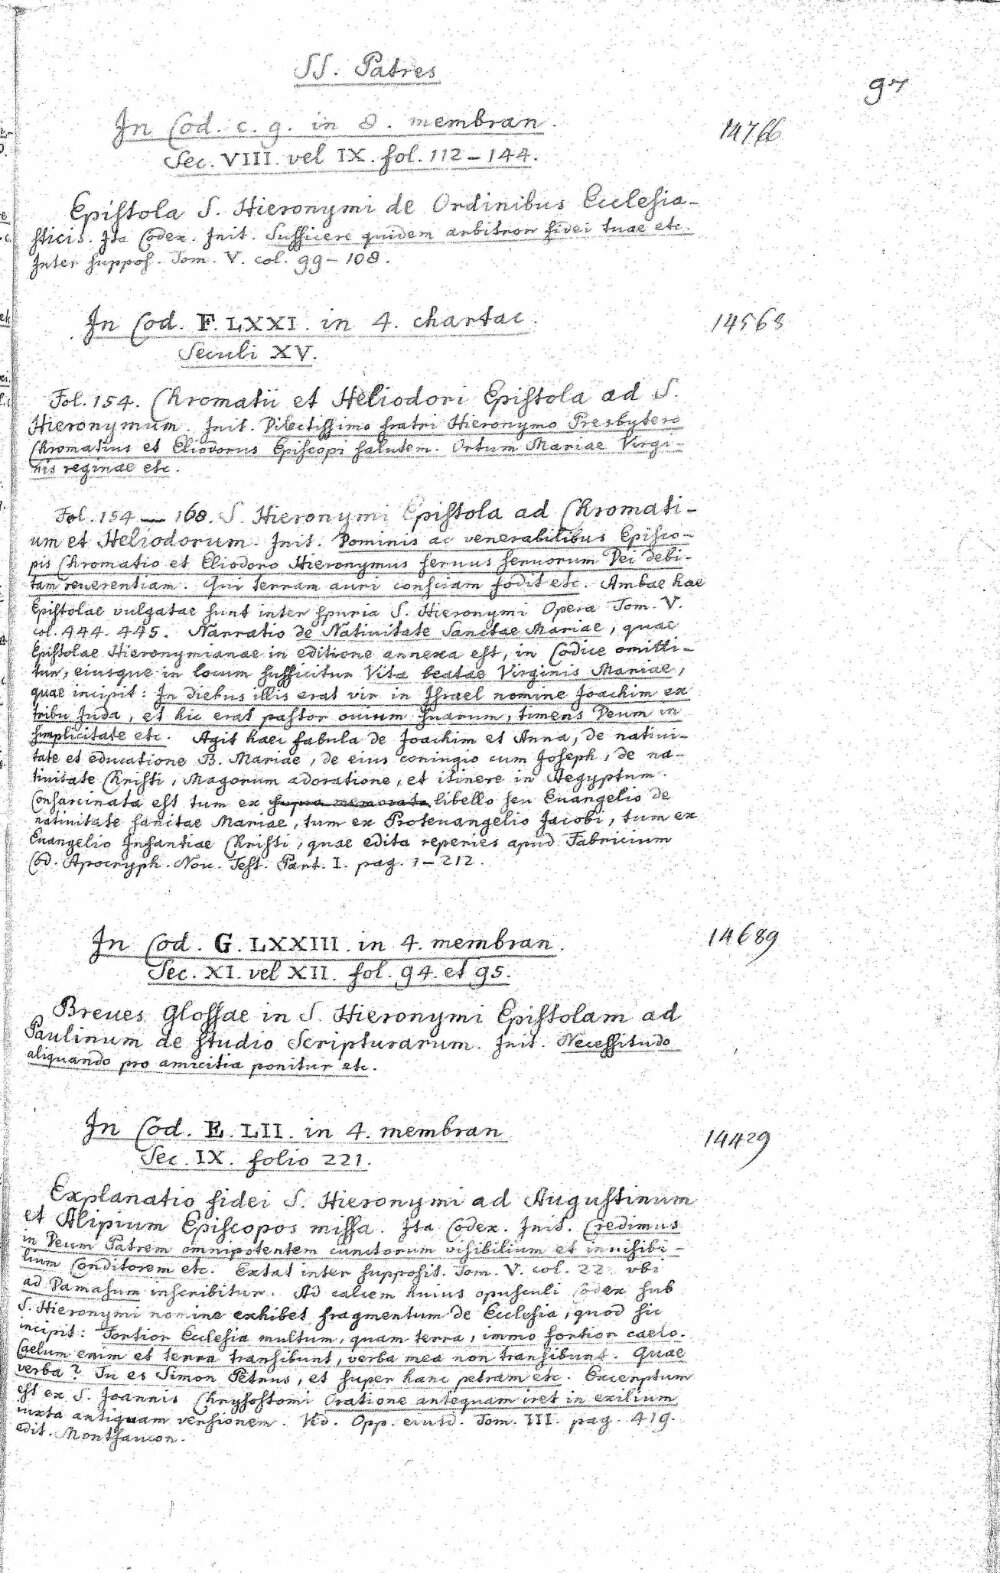 SS. Patres
97
In Cod. c. g. in 8. membran.
14766
Sec. VIII. vel IX. fol. 112 – 144.
Epistola S. Hieronymi de Ordinibus Ecclesia-
sticis. Ita Codex. Init. Sufficere quidem arbitror fidei tuae etc.
Inter suppos. Tom. V. col. 99 – 108.
In Cod. F. LXXI. in 4. chartac.
14563
Seculi XV.
Fol. 154. Chromatii et Heliodori Epistola ad S.
Hieronymum. Init. Dilectissimo fratri Hieronymo Presbytero
Chromatius et Eliodorus Episcopi salutem. Ortum Mariae Virgi-
nis reginae etc.
Fol. 154 — 168. S. Hieronymi Epistola ad Chromati-
um et Heliodorum. Init. Dominis ac venerabilibus Episco-
pis Chromatio et Eliodoro Hieronymus servus servorum Dei debi-
tam reverentiam. Qui terram auri consciam fodit etc. Ambae hae
Epistolae vulgatae sunt inter spuria S. Hieronymi Opera Tom. V.
col. 444. 445. Narratio de Nativitate Sanctae Mariae, quae
Epistolae Hieronymianae in editione annexa est, in Codice omitti-
tur, eiusque in locum sufficitur Vita beatae Virginis Mariae,
quae incipit: In diebus illis erat vir in Israel nomine Joachim ex
tribu Juda, et hic erat pastor ovium suarum, timens Deum in
simplicitate etc. Agit haec fabula de Joachim et Anna, de nativi-
tate et educatione B. Mariae, de eius coniugio cum Joseph, de na-
tivitate Christi, Magorum adoratione, et itinere in Aegyptum.
Consarcinata est tum ex supra memorata libello seu Euangelio de
nativitate sanctae Mariae, tum ex Protevangelio Jacobi, tum ex
Euangelio Infantiae Christi, quae edita reperies apud Fabricium
Cod. Apocryph. Nov. Test. Part. I. pag. 1 – 212.
In Cod. G. LXXIII. in 4. membran.
14689
Sec. XI. vel XII. fol. 94. et 95.
Breves Glossae in S. Hieronymi Epistolam ad
Paulinum de studio Scripturarum. Init. Necessitudo
aliquando pro amicitia ponitur etc.
In Cod. E. LII. in 4. membran
14429
Sec. IX. folio 221.
Explanatio fidei S. Hieronymi ad Augustinum
et Alipium Episcopos missa. Ita Codex. Init. Credimus
in Deum Patrem omnipotentem cunctorum visibilium et invisibi-
lium Conditorem etc. Extat inter supposit. Tom. V. col. 22. ubi
ad Damasum inscribitur. Ad calcem huius opusculi Codex sub
S. Hieronymi nomine exhibet fragmentum de Ecclesia, quod sic
incipit: Fortior Ecclesia multum, quam terra, immo fortior caelo.
Caelum enim et terra transibunt, verba mea non transibunt. Quae
verba? Tu es Simon Petrus, et super hanc petram etc. Excerptum
est ex S. Joannis Chrysostomi Oratione antequam iret in exilium
iuxta antiquam versionem. Vid. Opp. eiusd. Tom. III. pag. 419.
edit. Montfaucon.